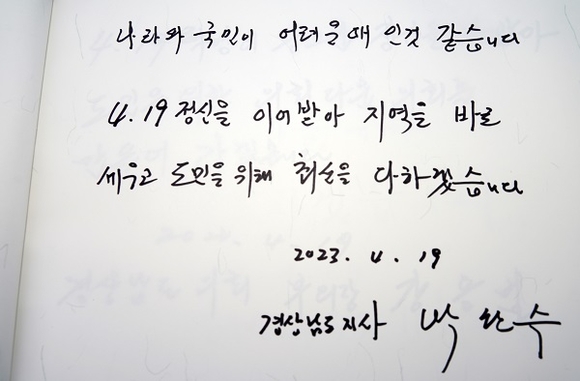 나라와 국민이 어려울때 인것 같습니다
4.19 정신을 이어받아 지역을 바로
세우고 도민을 위해 최선을 다하겠습니다
2023. 4. 19
경상남도지사 박완수